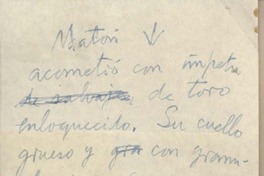 Matón ↓
acometió con ímpetu
de toro
enloquecido. Su cuello
grueso y gra con granu-